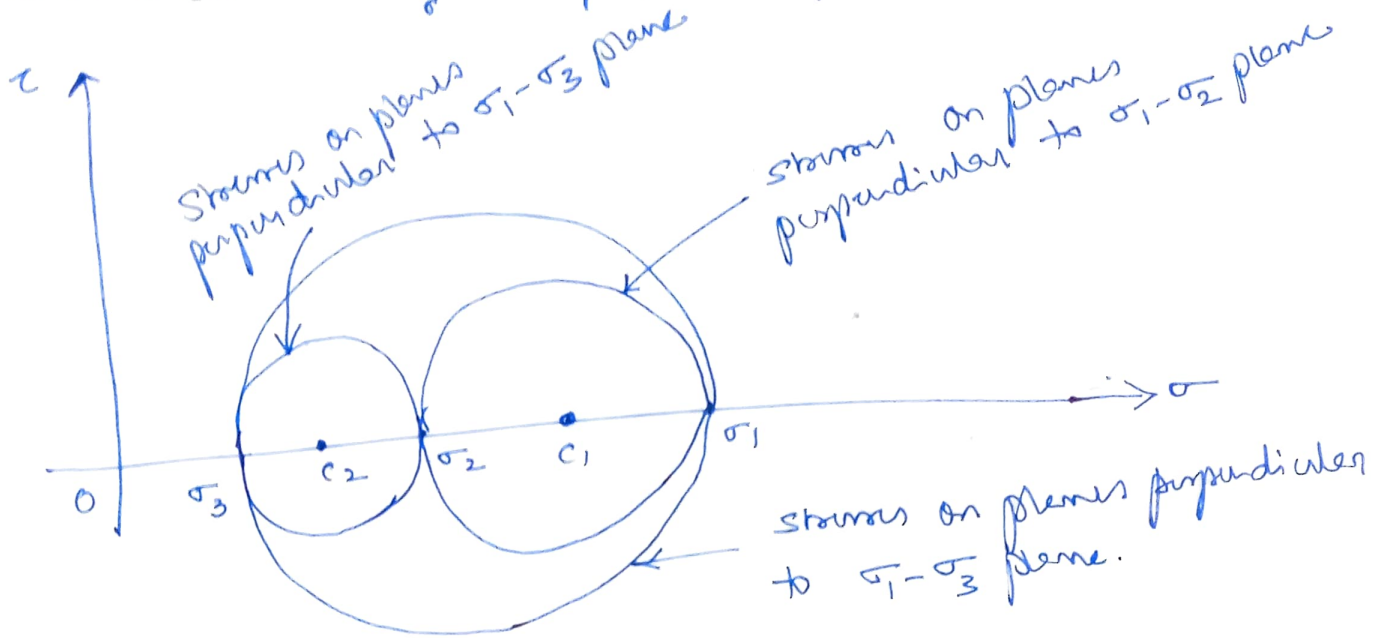 τ
stresses on planes
perpendicular to σ₁-σ₃ plane
stresses on planes
perpendicular to σ₁-σ₂ plane
σ
O
σ₃
C₂
σ₂
C₁
σ₁
stresses on planes perpendicular
to σ₁-σ₃ plane.